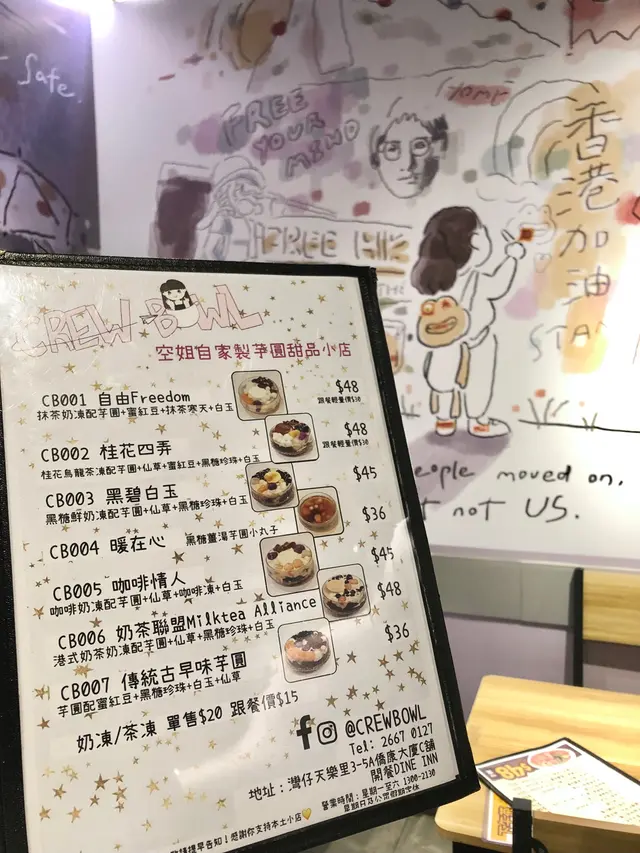 Safe.
FREE
YOUR
MIND
香港加油
FREE HK
people moved on,
not US.
CREW BOWL
空姐自家製芋圓甜品小店
CB001 自由Freedom $48
抹茶奶凍配芋圓+蜜紅豆+抹茶寒天+白玉 跟餐輕量價$38
CB002 桂花四弄 $48
桂花烏龍茶凍配芋圓+仙草+蜜紅豆+黑糖珍珠+白玉 跟餐輕量價$38
CB003 黑碧白玉 $45
黑糖鮮奶凍配芋圓+仙草+黑糖珍珠+白玉
CB004 暖在心 黑糖薑湯芋圓小丸子 $36
CB005 咖啡情人 $45
咖啡奶凍配芋圓+仙草+咖啡凍+白玉
CB006 奶茶聯盟Milktea Alliance $48
港式奶茶奶凍配芋圓+仙草+黑糖珍珠+白玉
CB007 傳統古早味芋圓 $36
芋圓配蜜紅豆+黑糖珍珠+白玉+仙草
奶凍/茶凍 單售$20 跟餐價$15
@CREWBOWL
Tel: 2667 0127
地址：灣仔天樂里3-5A僑康大廈C舖
開餐DINE INN
營業時間：星期一至六 1300-2130
星期日及公眾假期定休
請提早告知！感謝你支持本土小店